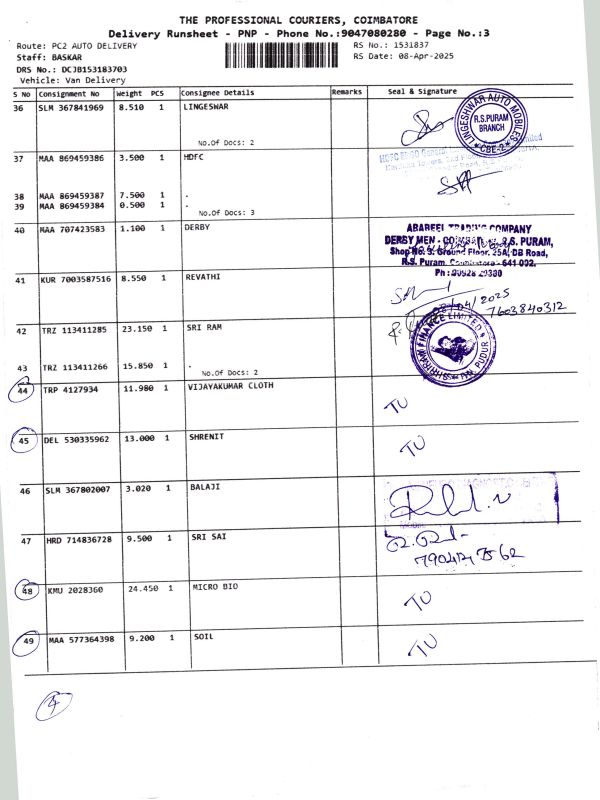 THE PROFESSIONAL COURIERS, COIMBATORE
Delivery Runsheet - PNP - Phone No.:9047080280 - Page No.:3
Route: PC2 AUTO DELIVERY RS No.: 1531837
Staff: BASKAR RS Date: 08-Apr-2025
DRS No.: DCJB153183703
Vehicle: Van Delivery
S No Consignment No Weight PCS Consignee Details Remarks Seal & Signature
36 SLM 367841969 8.510 1 LINGESWAR
LINGESHWAR AUTO MOBILES
R.S.PURAM
BRANCH
* CBE-2 *
No.Of Docs: 2
37 MAA 869459386 3.500 1 HDFC
38 MAA 869459387 7.500 1 .
39 MAA 869459384 0.500 1 .
No.Of Docs: 3
40 MAA 707423583 1.100 1 DERBY
ABAREEL TRADING COMPANY
DERBY MEN - R.S. PURAM,
Shop No. 9. Ground Floor. 25A, DB Road,
R.S. Puram, Coimbatore - 641 002.
41 KUR 7003587516 8.550 1 REVATHI
08/04/2025
7603840312
42 TRZ 113411285 23.150 1 SRI RAM
FINANCE LIMITED
PUDUR
43 TRZ 113411266 15.850 1 .
No.Of Docs: 2
44 TRP 4127934 11.980 1 VIJAYAKUMAR CLOTH
TU
45 DEL 530335962 13.000 1 SHRENIT
TU
46 SLM 367802007 3.020 1 BALAJI
47 HRD 714836728 9.500 1 SRI SAI
48 KMU 2028360 24.450 1 MICRO BIO
TU
49 MAA 577364398 9.200 1 SOIL
TU
4